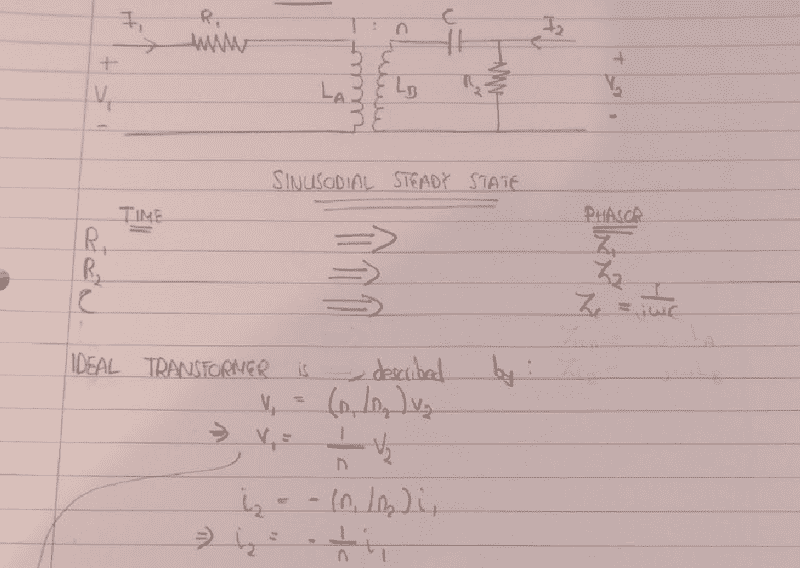 I₁ R₁ 1 : n C I₂
+ +
V₁ L_A L_B R₂ V₂
- -
SINUSODIAL STEADY STATE
TIME PHASOR
R₁ ⇒ Z₁
R₂ ⇒ Z₂
C ⇒ Z_c = 1/iωc
IDEAL TRANSFORMER is described by:
V₁ = (n₁/n₂)V₂
⇒ V₁ = 1/n V₂
i₂ = -(n₁/n₂)i₁
⇒ i₂ = - 1/n i₁